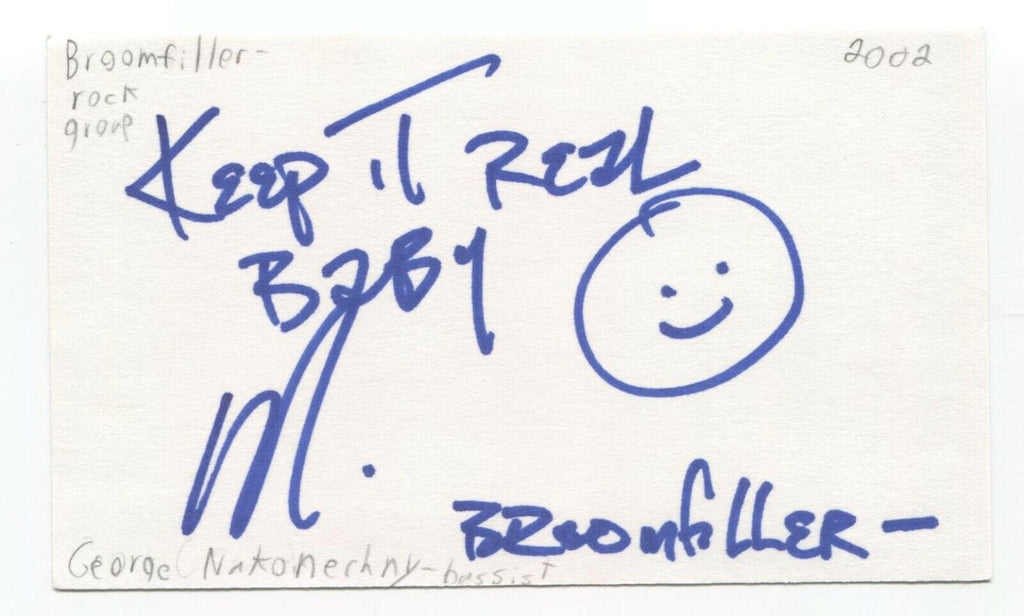 Broomfiller-
rock
group
2002
KEEP IT REAL
BABY
M.
BROOMfillER -
George Nakonechny-bassist